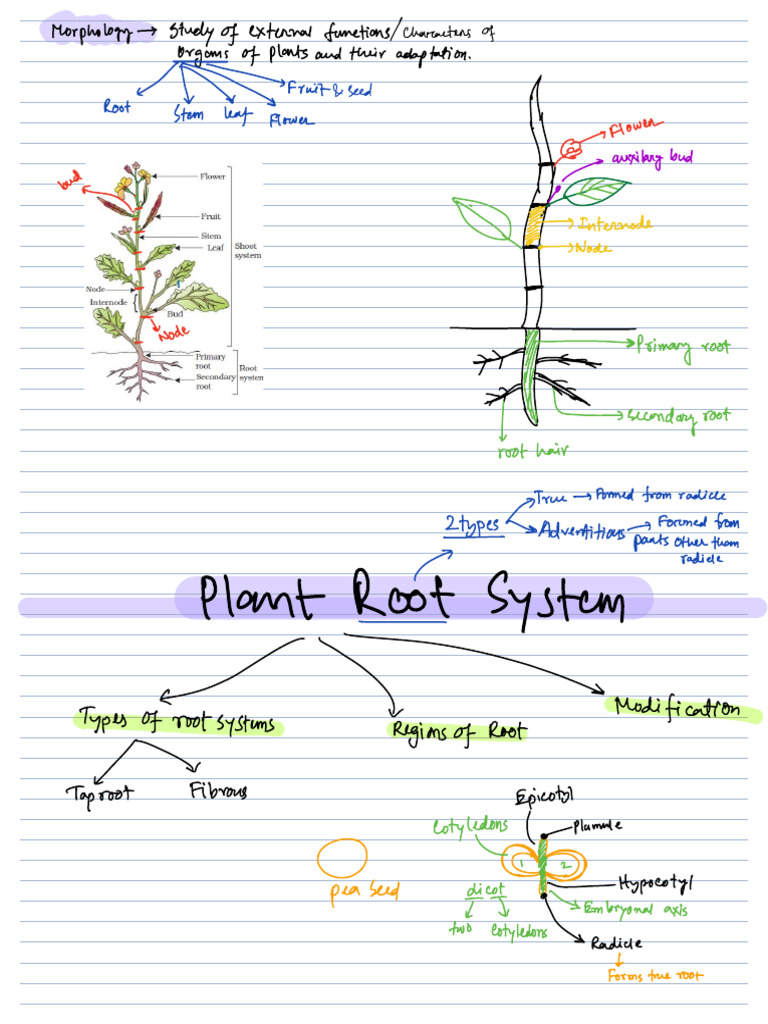 Morphology → Study of external functions/characters of
organs of plants and their adaptation.
Root
Stem
leaf
Flower
Fruit & seed
bud
Flower
Fruit
Stem
Leaf
Shoot
system
Node
Internode
Bud
Node
Primary
root
Secondary
root
Root
system
Flower
auxilary bud
Internode
Node
Primary root
Secondary root
root hair
2 types
True → Formed from radicle
Adventitious → Formed from
parts other than
radicle
Plant Root System
Types of root systems
Regions of Root
Modification
Tap root
Fibrous
pea seed
Epicotyl
Cotyledons
Plumule
1
2
Hypocotyl
Embryonal axis
dicot
two
Cotyledons
Radicle
Forms true root